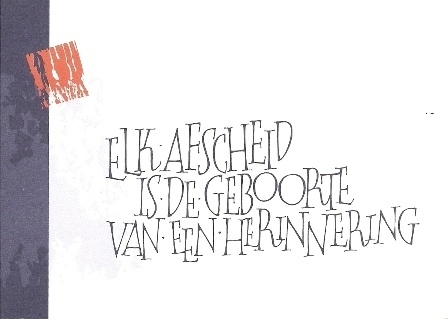 ELK·AFSCHEID
IS·DE·GEBOORTE
VAN·EEN·HERINNERING